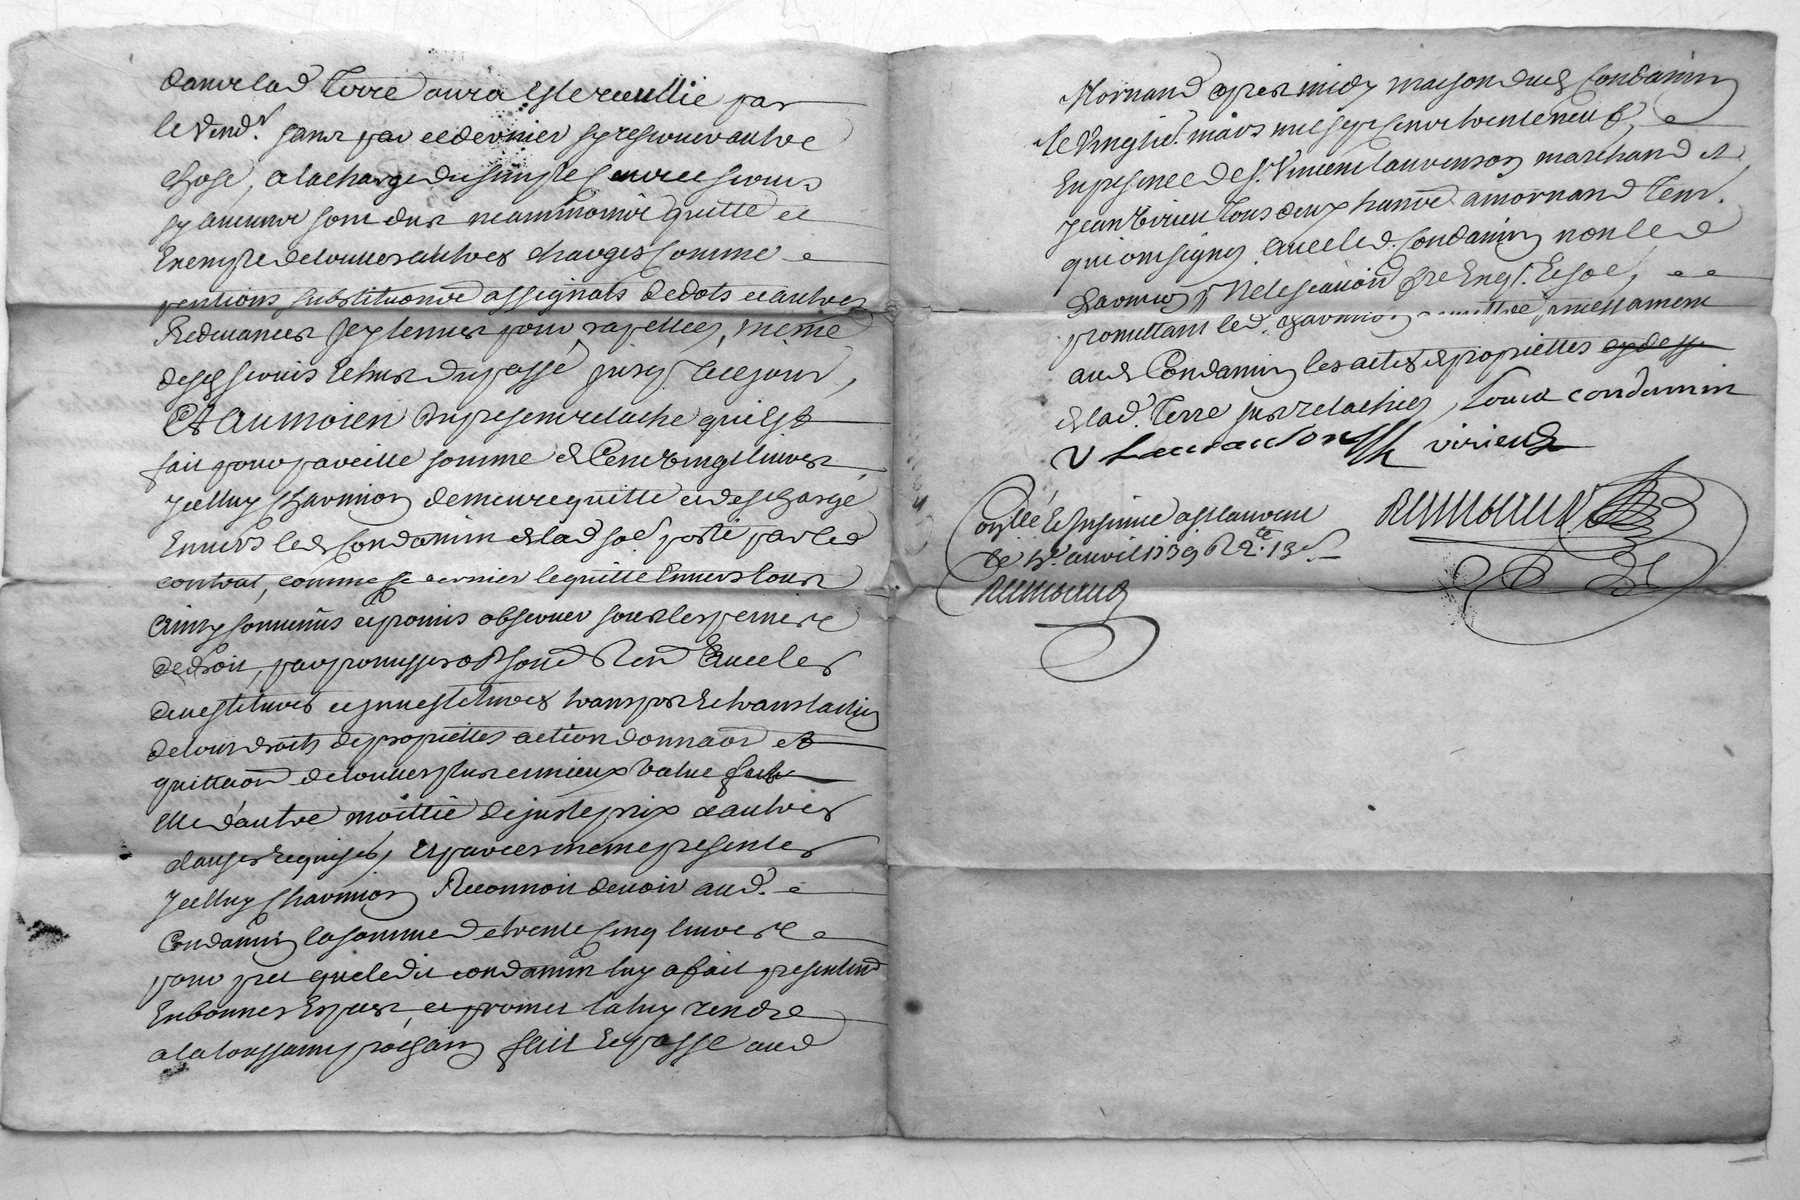 dans lad Terre aura este recuillie par
le Vend.r sans par ce dernier sy reserver autre
chose, a la charge du simple cens et servis
sy aucuns sont dus neammoins quitte et
Exempte de toutes autres charges comme
pentions substitutions assignats de dots et autres
Redevances sy tenues pour rapellées, meme
desds servis Echus du passé jusq. a ce jour,
Et Aumoien du present relache quil Est
fait pour pareille somme de Cent vingt livres
Jcelluy Charmion demeure quitte et descharge
Envers led Condamin de lad soe porté par led
contrat, comme ce dernier le quitte Envers tous
Ainsy convenûs et promis observer sous les peine
de droit, par promesse obl soum Ren Avec les
devestitures et investitures transport et translation
de tous droits de proprietté action donnaon et
quittaon de toutes plus et mieux Value fut
elle d'autre moittié de juste prix et autres
clauses requises, Et par ces meme presentes
Jcelluy Charmion Reconnoit devoir aud.
Condamin la somme de trente Cinq livres
pour pret que ledit condamin luy a fait presentend
En bonnes Especes et promet la luy rendre
a la toussaint prochain fait Et passé aud
Mornand apres midy maison dud Condamin
le Vingtie. mars mil sept cent trente neuf,
En presence de sr. Vincent laurenson marchand et
Jean Virieu tous deux hants. a mornand Tem.
qui ont signés avec led. condamin non led
Charmion p.r ne le scavoir de Enq.s Et soe,
promettant led. charmion remettre incessament
aud Condamin les actes de proprietté
de lad. Terre sus relachée, Louis condamin
V Lauranson virieu
Conllé Et Insinué a St laurent
le 4e. avril 1739 R 2.te 13 s
Remoeud
Remoeud